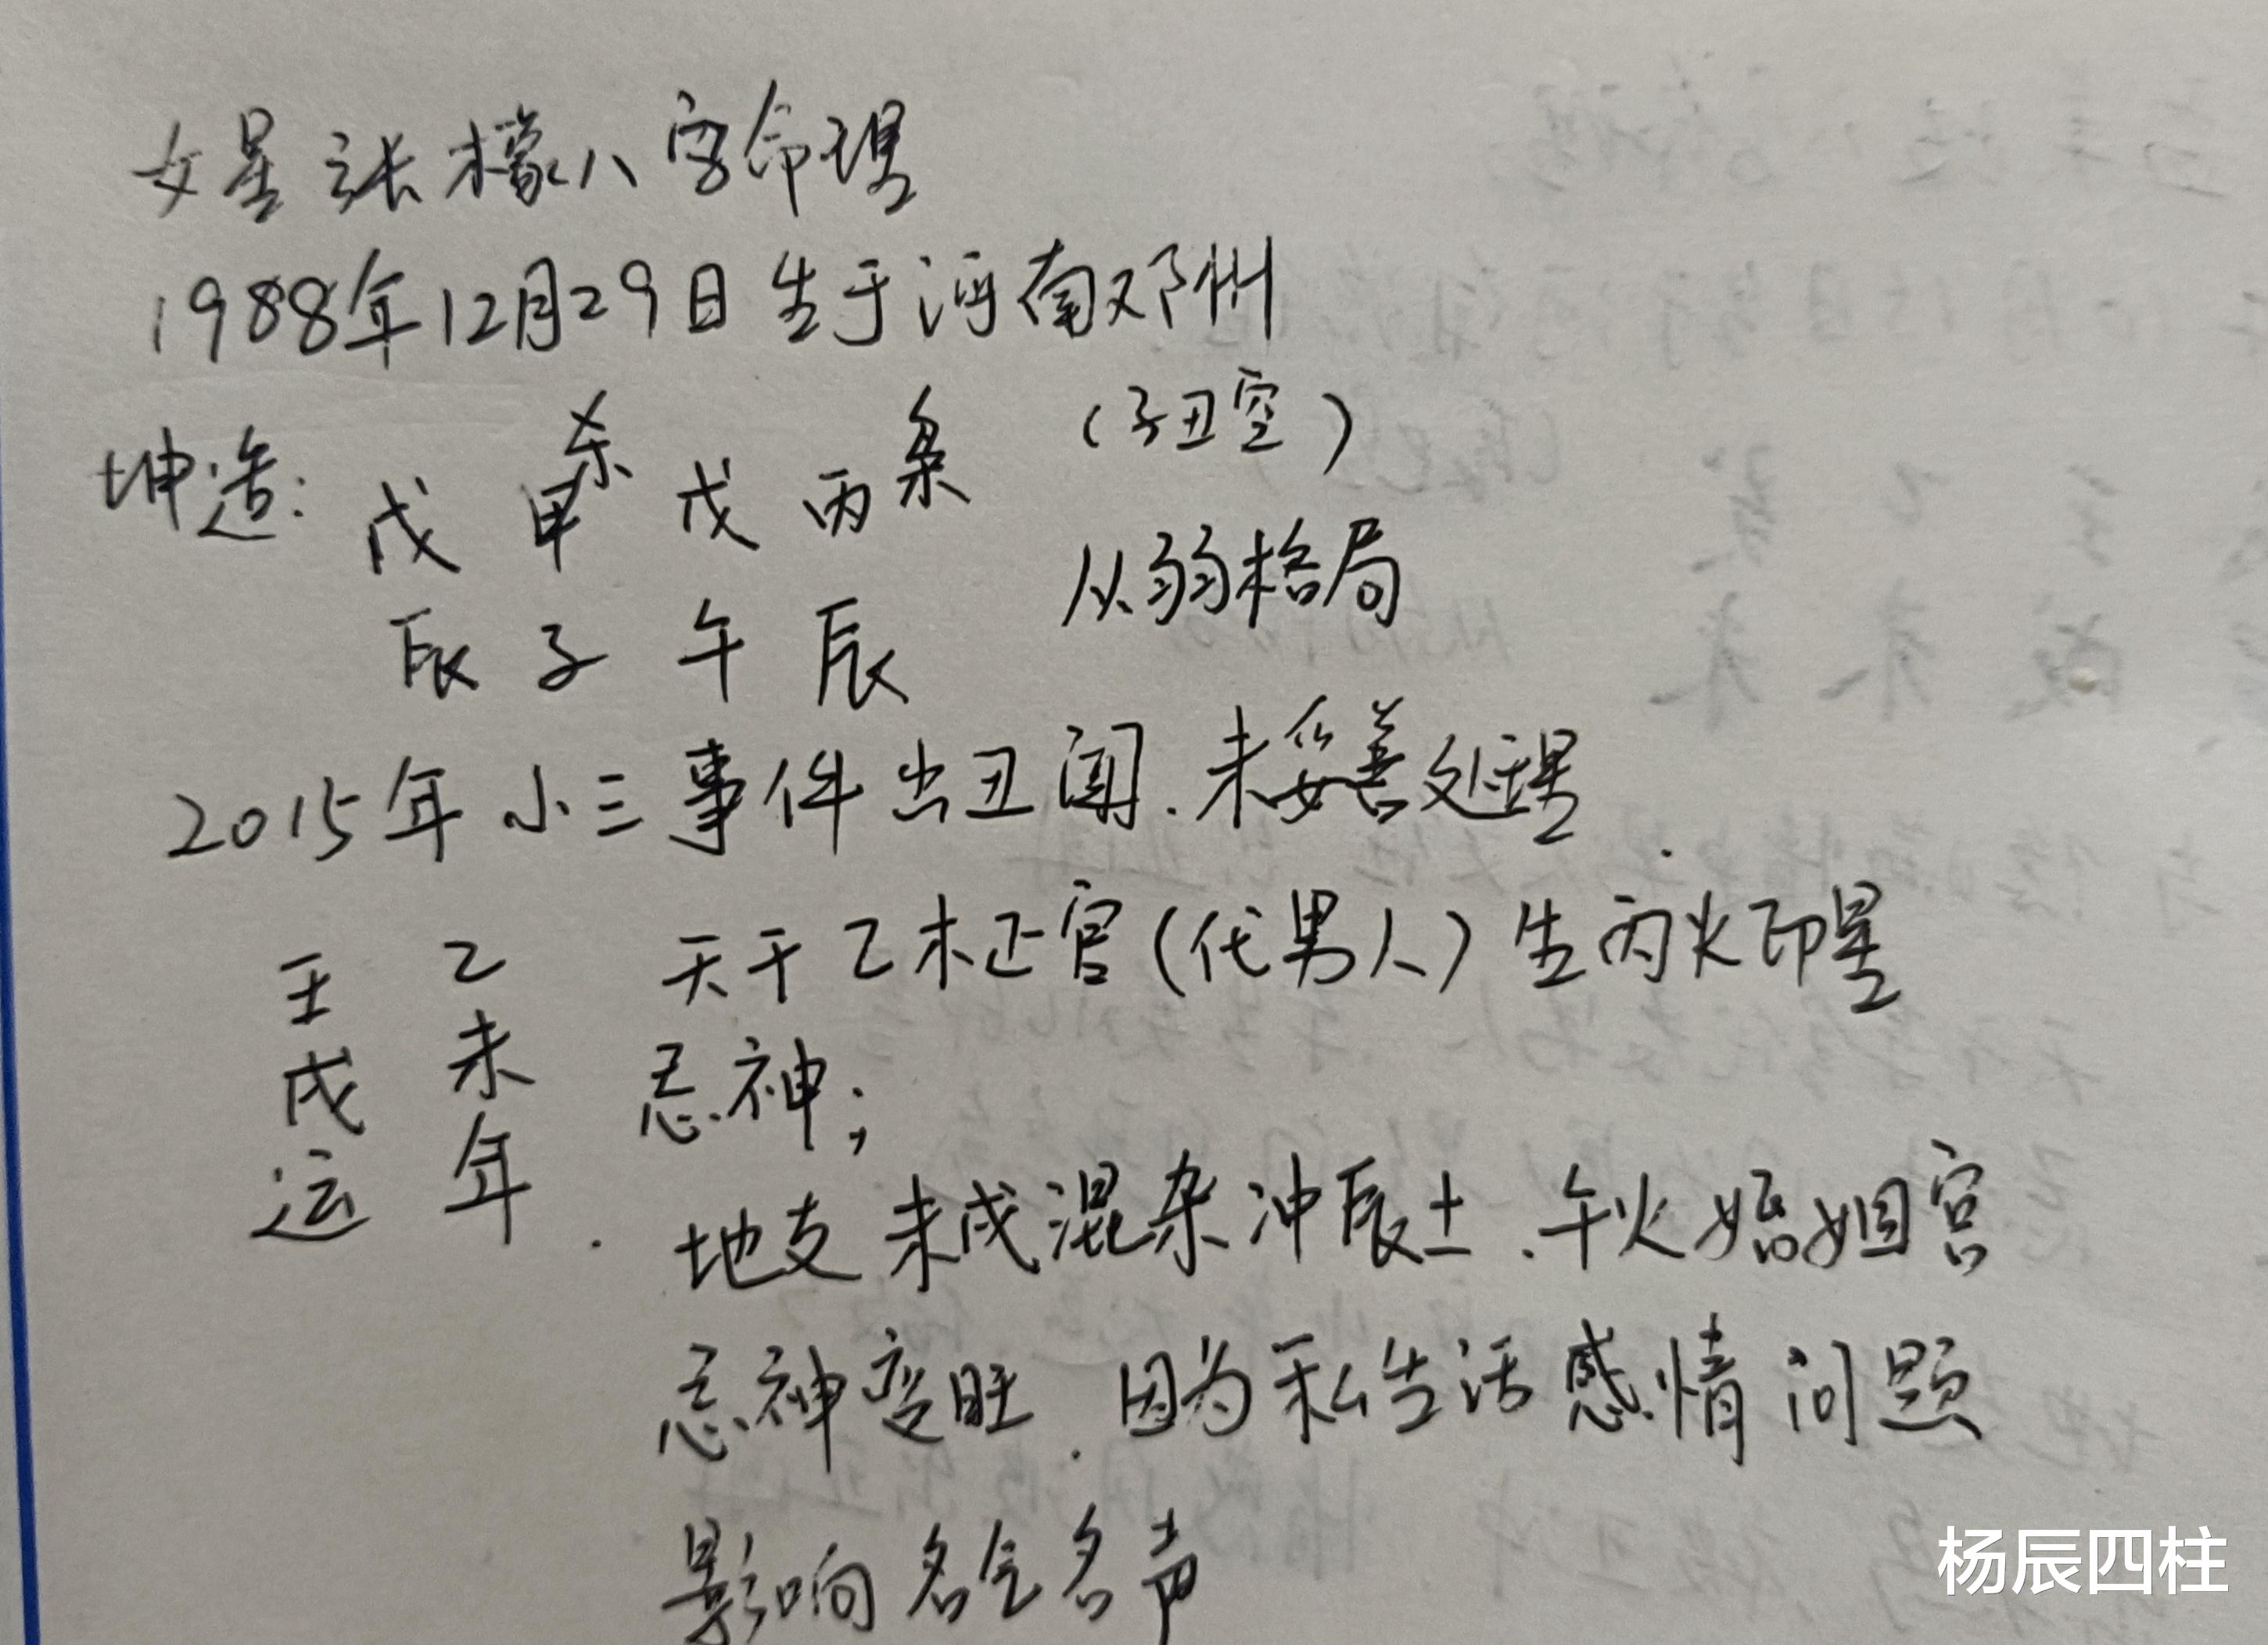 女星张檬八字命理
1988年12月29日生于河南邓州
坤造: 戊 甲杀 戊 丙枭 (子丑空)
辰 子 午 辰 从弱格局
2015年小三事件出丑闻.未妥善处理.
壬戌运 乙未年. 天干乙木正官(代男人)生丙火印星
忌神;
地支未戌混杂冲辰土.午火婚姻宫
忌神变旺.因为私生活感情问题
影响名气名声
杨辰四柱